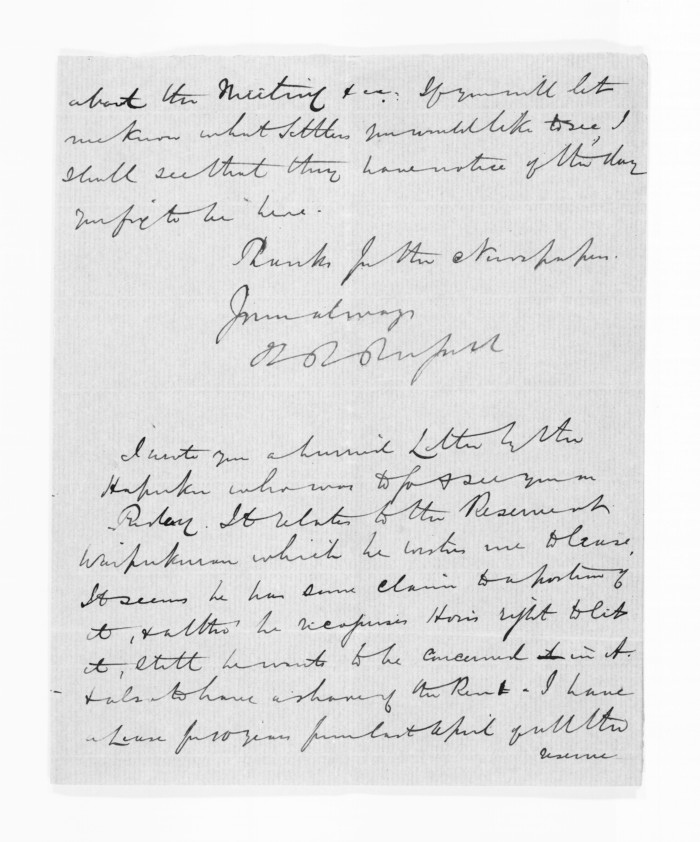 about the Meeting &ca: If you will let
me know what Settlers you would like to see, I
shall see that they have notice of the day
you fix to be here.
Thanks for the Newspaper.
Yours always
I wrote you a hurried Letter by the
Hapuku who was to go & see you on
Friday. It relates to the Reserve at
Waipukurau which he wishes me to lease,
It seems he has some claim to a portion of
it, & altho' he recognises Hori's right to let
it, still he wants to be concerned in it
& also to have a share of the Rent - I have
a Lease for 10 years from last April of all the
reserve